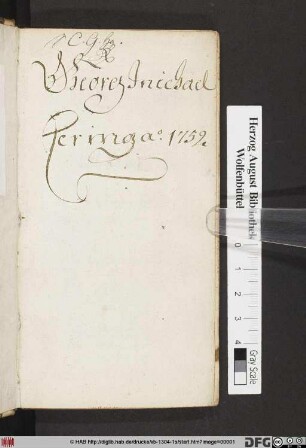 Georg Michael
Fering aº. 1759.
Herzog August Bibliothek
Wolfenbüttel
0 1 2 3 4
Gray Scale
© HAB http://diglib.hab.de/drucke/lb-1304-1s/start.htm?image=00001
DFG